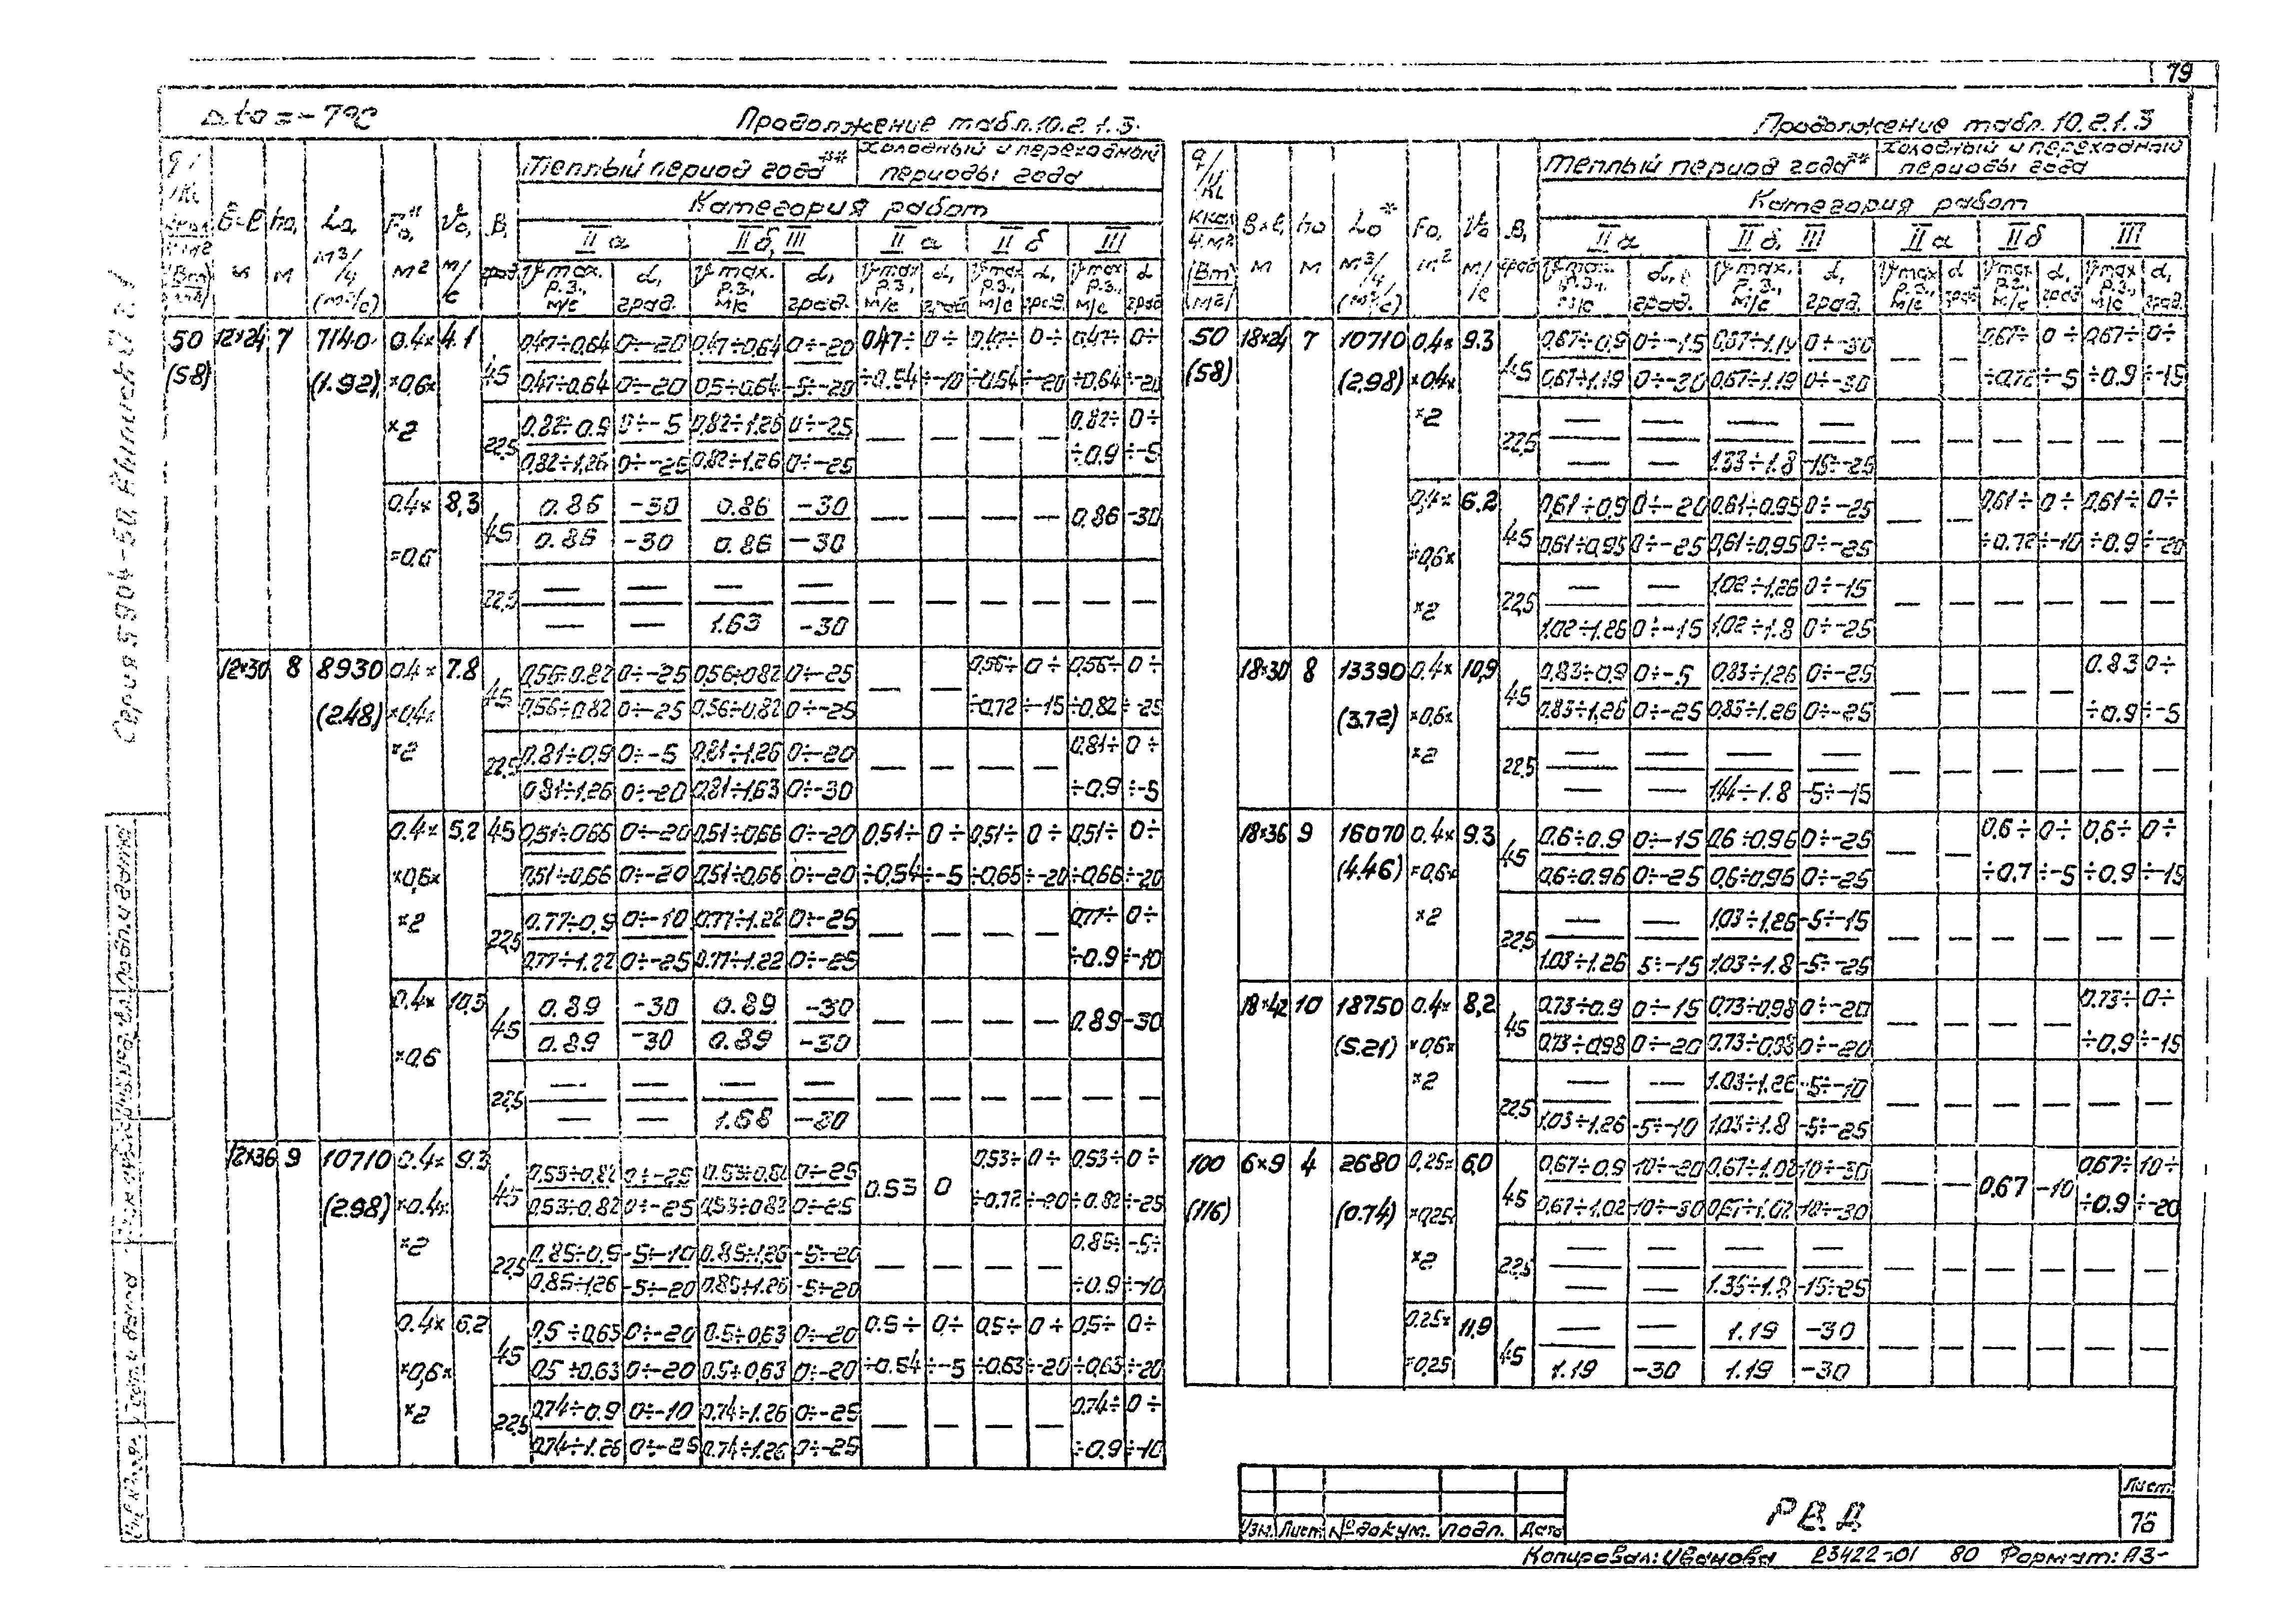 79
Δto = -7°C
Продолжение табл. 10.2.1.3.
Теплый период года** Холодный и переходный периоды года
Категория работ
II а II б, III II а II б III
50 12×24 7 7140 0.4× 4.1 45 0,47÷0,64 0÷-20 0,47÷0,64 0÷-20 0,47÷ 0÷ 0,47÷ 0÷ 0,47÷ 0÷
(58) (1.92) ×0,6× 0,47÷0,64 0÷-20 0,5÷0,64 -5÷-20 ÷0.54 ÷-10 ÷0,54 ÷-20 ÷0,64 ÷-20
×2 22,5 0,82÷0,9 0÷-5 0,82÷1,26 0÷-25 — — — — 0,82÷ 0÷
0,82÷1,26 0÷-25 0,82÷1,26 0÷-25 ÷0.9 ÷-5
0.4× 8,3 45 0.86 -30 0.86 -30 — — — — 0,86 -30
×0,6 0.86 -30 0.86 -30
22,5 — — — — — — — — — —
— — 1.63 -30
12×30 8 8930 0.4× 7.8 45 0,56÷0.82 0÷-25 0,56÷0,82 0÷-25 — — 0,56÷ 0÷ 0,56÷ 0÷
(2.48) ×0,4× 0,56÷0,82 0÷-25 0,56÷0,82 0÷-25 ÷0,72 ÷-15 ÷0,82 ÷-25
×2 22,5 0,81÷0,9 0÷-5 0,81÷1,26 0÷-20 — — — — 0,81÷ 0÷
0,81÷1,26 0÷-20 0,81÷1,63 0÷-30 ÷0.9 ÷-5
0.4× 5,2 45 0,51÷0,66 0÷-20 0,51÷0,66 0÷-20 0,51÷ 0÷ 0,51÷ 0÷ 0,51÷ 0÷
×0,6× 0,51÷0,66 0÷-20 0,51÷0,66 0÷-20 ÷0,54 ÷-5 ÷0,65 ÷-20 ÷0,66 ÷-20
×2 22,5 0.77÷0,9 0÷-10 0,77÷1.22 0÷-25 — — — — 0,77÷ 0÷
0,77÷1.22 0÷-25 0.77÷1.22 0÷-25 ÷0.9 ÷-10
0.4× 10,3 45 0.89 -30 0.89 -30 — — — — 0.89 -30
×0,6 0.89 -30 0.89 -30
22,5 — — — — — — — — — —
— — 1.68
12×36 9 10710 0.4× 9.3 45 0,53÷0,82 0÷-25 0.53÷0.82 0÷-25 0.53 0 0,53÷ 0÷ 0,53÷ 0÷
(2.98) ×0.4× 0,53÷0,82 0÷-25 0,53÷0,82 0÷-25 ÷0,72 ÷-20 ÷0.82 ÷-25
×2 22,5 0.85÷0,9 -5÷-10 0.85÷1,26 -5÷-20 — — — — 0.85÷ -5÷
0,85÷1,26 -5÷-20 0.85÷1.26 -5÷-20 ÷0.9 ÷-10
0.4× 6.2 45 0.5÷0÷-20 0.5÷0,63 0÷-20 0.5÷ 0÷ 0,5÷ 0÷ 0,5÷ 0÷
×0,6× 0,5÷0,63 0÷-20 0.5÷0,63 0÷-20 ÷0.54 ÷-5 ÷0,63 ÷-20 ÷0,63 ÷-20
×2 22,5 0,74÷0.9 0÷-10 0,74÷1.26 0÷-25 — — — — 0,74÷ 0÷
0,74÷1.26 0÷-25 0.74÷1.26 0÷-25 ÷0.9 ÷-10
Продолжение табл. 10.2.1.3
Теплый период года** Холодный и переходный периоды года
Категория работ
II а II б, III II а II б III
50 18×24 7 10710 0,4× 9.3 45 0,67÷0,9 0÷-15 0,67÷1,19 0÷-30 — — 0,67÷ 0÷ 0,67÷ 0÷
(58) (2,98) ×0,4× 0,67÷1,19 0÷-30 ÷0,72 ÷-5 ÷0.9 ÷-15
×2 22,5 — — — — — — — — — —
— — 1.33÷1.8 -15÷-25
0,4× 6.2 45 0,61÷0,9 0÷-20 0.61÷0.95 0÷-25 — — 0,61÷ 0÷ 0,61÷ 0÷
×0,6× 0,61÷0,95 0÷-25 0,61÷0,95 0÷-25 ÷0.72 ÷-10 ÷0.9 ÷-20
×2 22,5 — — 1,02÷1,26 0÷-15 — — — — — —
1,02÷1.26 0÷-15 1,02÷1.8 0÷-25
18×30 8 13390 0.4× 10,9 45 0,83÷0,9 0÷-5 0,83÷1,26 0÷-25 — — — — 0.83 0÷
(3.72) ×0,6× 0,83÷1,26 0÷-25 0,83÷1.26 0÷-25 ÷0.9 ÷-5
×2 22,5 — — — — — — — — — —
— — 1,44÷1.8 -5÷-15
18×36 9 16070 0.4× 9.3 45 0,6÷0.9 0÷-15 0,6÷0,96 0÷-25 — — 0,6÷ 0÷ 0,6÷ 0÷
(4.46) ×0,6× 0,6÷0.96 0÷-25 0,6÷0,96 0÷-25 ÷0.7 ÷-5 ÷0.9 ÷-15
×2 22,5 — — 1,03÷1,26 -5÷-15 — — — — — —
1.03÷1.26 5÷-15 1,03÷1.8 -5÷-25
18×42 10 18750 0.4× 8,2 45 0,73÷0.9 0÷-15 0,73÷0,98 0÷-20 — — — — 0.73÷ 0÷
(5.21) ×0,6× 0,73÷0,98 0÷-20 0÷-20 ÷0,9 ÷-15
×2 22,5 — — 1.03÷1.26 -5÷-10 — — — — — —
1,03÷1.26 -5÷-10 1,03÷1.8 -5÷-25
100 6×9 4 2680 0,25× 6,0 45 0,67÷0.9 -10÷-20 0,67÷1.02 -10÷-30 — — 0,67 -10 0,67÷ 10÷
(116) (0.74) ×0,25× 0,67÷1.02 -10÷-30 0,67÷1.02 -10÷-30 ÷0.9 ÷-20
×2 22,5 — — — — — — — — — —
— — 1.35÷1.8 -15÷-25
0.25× 11,9 45 — — 1.19 -30 — — — — — —
×0,25 1.19 -30 1.19 -30
РВД
Лист
76
Изм. Лист № докум. подп. Дата
Копировал: Иванова 23422-01 80 Формат: А3